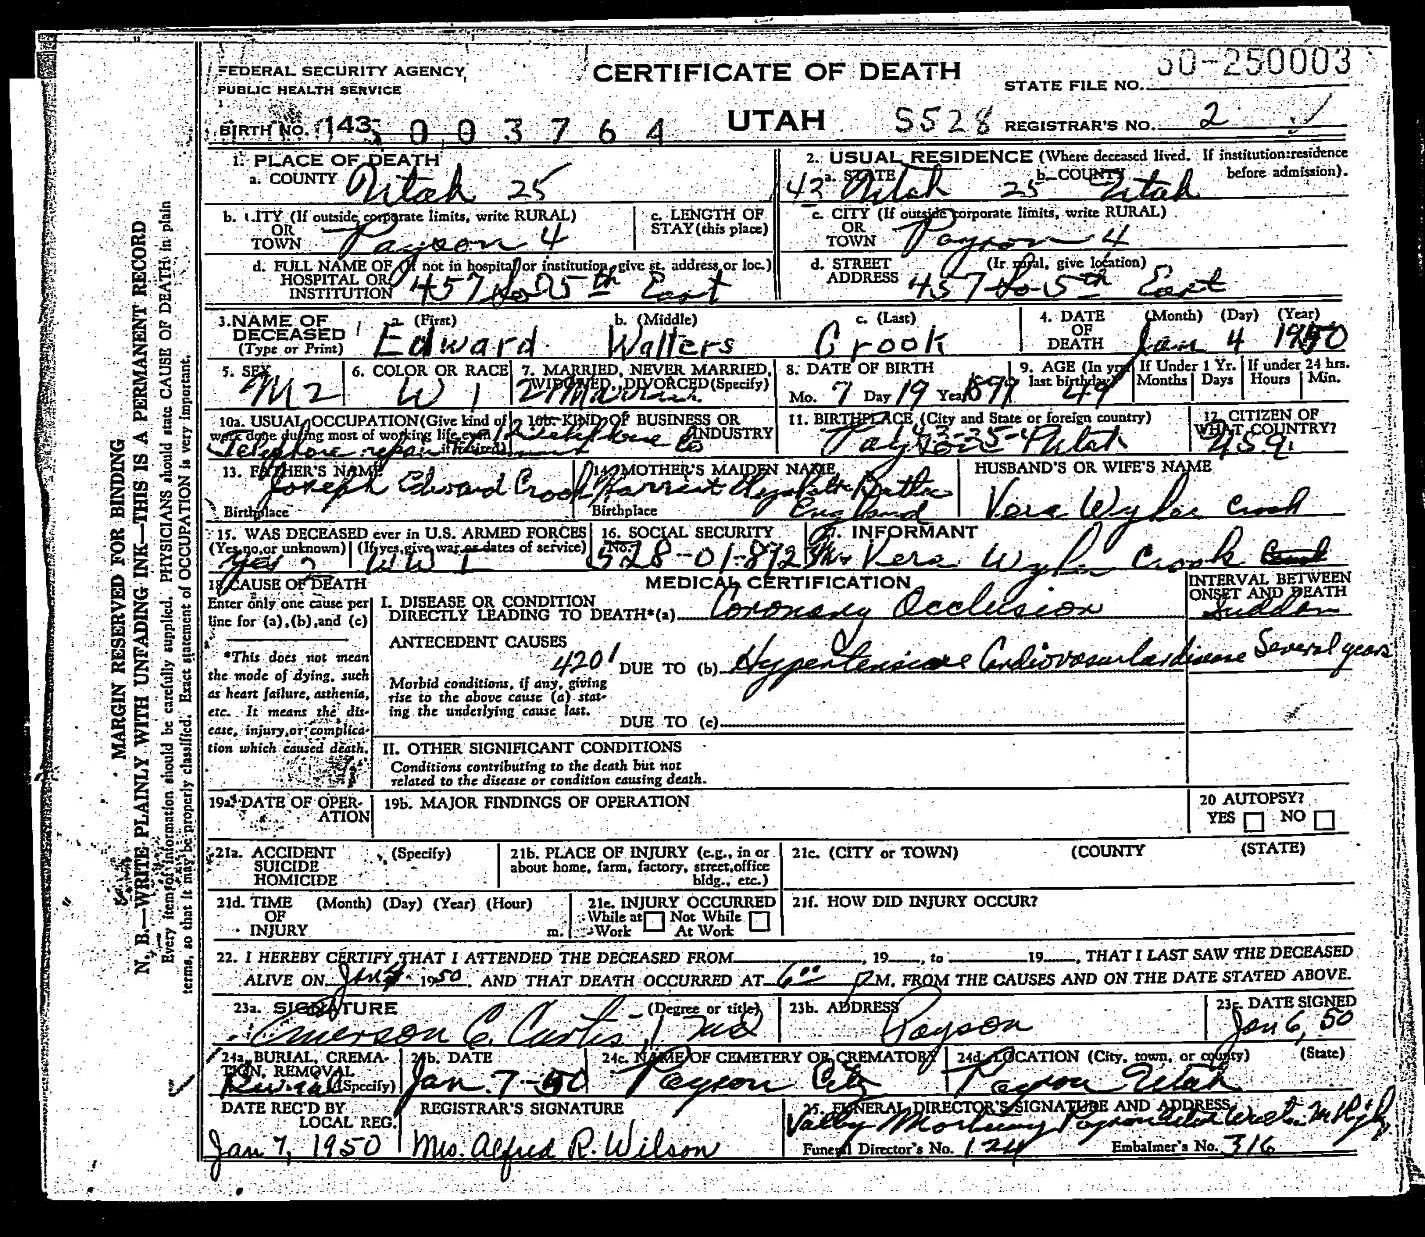 FEDERAL SECURITY AGENCY,
PUBLIC HEALTH SERVICE
CERTIFICATE OF DEATH
UTAH
S528
STATE FILE NO. 50-250003
REGISTRAR'S NO. 2
BIRTH NO. 143 5 0 0 3 7 6 4
1. PLACE OF DEATH
a. COUNTY Utah 25
2. USUAL RESIDENCE (Where deceased lived. If institution: residence before admission).
a. STATE 43 Utah 25 b. COUNTY Utah
b. CITY (If outside corporate limits, write RURAL) OR TOWN Payson 4
c. LENGTH OF STAY (this place)
c. CITY (If outside corporate limits, write RURAL) OR TOWN Payson 4
d. FULL NAME OF (If not in hospital or institution, give st. address, or loc.) HOSPITAL OR INSTITUTION 457 So 5th East
d. STREET ADDRESS (If rural, give location) 457 So 5th East
3. NAME OF DECEASED (Type or Print)
a. (First) Edward
b. (Middle) Walters
c. (Last) Crook
4. DATE OF DEATH (Month) (Day) (Year) Jan 4 1950
5. SEX M 2
6. COLOR OR RACE W 1
7. MARRIED, NEVER MARRIED, WIDOWED, DIVORCED (Specify) 2
8. DATE OF BIRTH Mo. 7 Day 19 Year
9. AGE (In yrs. last birthday) 49
If Under 1 Yr. Months Days
If under 24 hrs. Hours Min.
10a. USUAL OCCUPATION (Give kind of work done during most of working life, even if retired) Telephone
10b. KIND OF BUSINESS OR INDUSTRY Telephone Co
11. BIRTHPLACE (City and State or foreign country) Utah
12. CITIZEN OF WHAT COUNTRY? USA
13. FATHER'S NAME Joseph Edward Crook
Birthplace
14. MOTHER'S MAIDEN NAME Harriet Elizabeth
Birthplace England
HUSBAND'S OR WIFE'S NAME
Vera Wyler Crook
15. WAS DECEASED ever in U.S. ARMED FORCES (Yes, no, or unknown) (If yes, give war or dates of service)
Yes WW I
16. SOCIAL SECURITY No. 528-01-8723
17. INFORMANT
Mrs Vera Wyler Crook
18. CAUSE OF DEATH
Enter only one cause per line for (a), (b), and (c)
*This does not mean the mode of dying, such as heart failure, asthenia, etc. It means the disease, injury, or complication which caused death.
MEDICAL CERTIFICATION
INTERVAL BETWEEN ONSET AND DEATH
I. DISEASE OR CONDITION DIRECTLY LEADING TO DEATH*(a) Coronary Occlusion Sudden
ANTECEDENT CAUSES
4201 DUE TO (b) Hypertensive Cardiovascular disease Several years
Morbid conditions, if any, giving rise to the above cause (a) stating the underlying cause last.
DUE TO (c)
II. OTHER SIGNIFICANT CONDITIONS
Conditions contributing to the death but not related to the disease or condition causing death.
19a. DATE OF OPERATION
19b. MAJOR FINDINGS OF OPERATION
20 AUTOPSY?
YES NO
21a. ACCIDENT SUICIDE HOMICIDE (Specify)
21b. PLACE OF INJURY (e.g., in or about home, farm, factory, street, office bldg., etc.)
21c. (CITY or TOWN) (COUNTY (STATE)
21d. TIME OF INJURY (Month) (Day) (Year) (Hour) m.
21e. INJURY OCCURRED While at Work Not While At Work
21f. HOW DID INJURY OCCUR?
22. I HEREBY CERTIFY THAT I ATTENDED THE DECEASED FROM , 19 , to 19 , THAT I LAST SAW THE DECEASED
ALIVE ON Jan 4 1950. AND THAT DEATH OCCURRED AT 6 00 P M. FROM THE CAUSES AND ON THE DATE STATED ABOVE.
23a. SIGNATURE (Degree or title) Emerson C. Curtis, MD
23b. ADDRESS Payson
23c. DATE SIGNED Jan 6, 50
24a. BURIAL, CREMATION, REMOVAL (Specify)
24b. DATE Jan. 7-50
24c. NAME OF CEMETERY OR CREMATORY Payson City
24d. LOCATION (City, town, or county) (State) Payson Utah
DATE REC'D BY LOCAL REG. Jan 7, 1950
REGISTRAR'S SIGNATURE
Mrs. Alfred R. Wilson
25. FUNERAL DIRECTOR'S SIGNATURE AND ADDRESS
Valley Mortuary Payson Utah
Funeral Director's No. 124 Embalmer's No. 316
MARGIN RESERVED FOR BINDING
N. B.—WRITE PLAINLY WITH UNFADING INK—THIS IS A PERMANENT RECORD
Every item for information should be carefully supplied. PHYSICIANS should state CAUSE OF DEATH in plain
terms, so that it may be properly classified. Exact statement of OCCUPATION is very important.